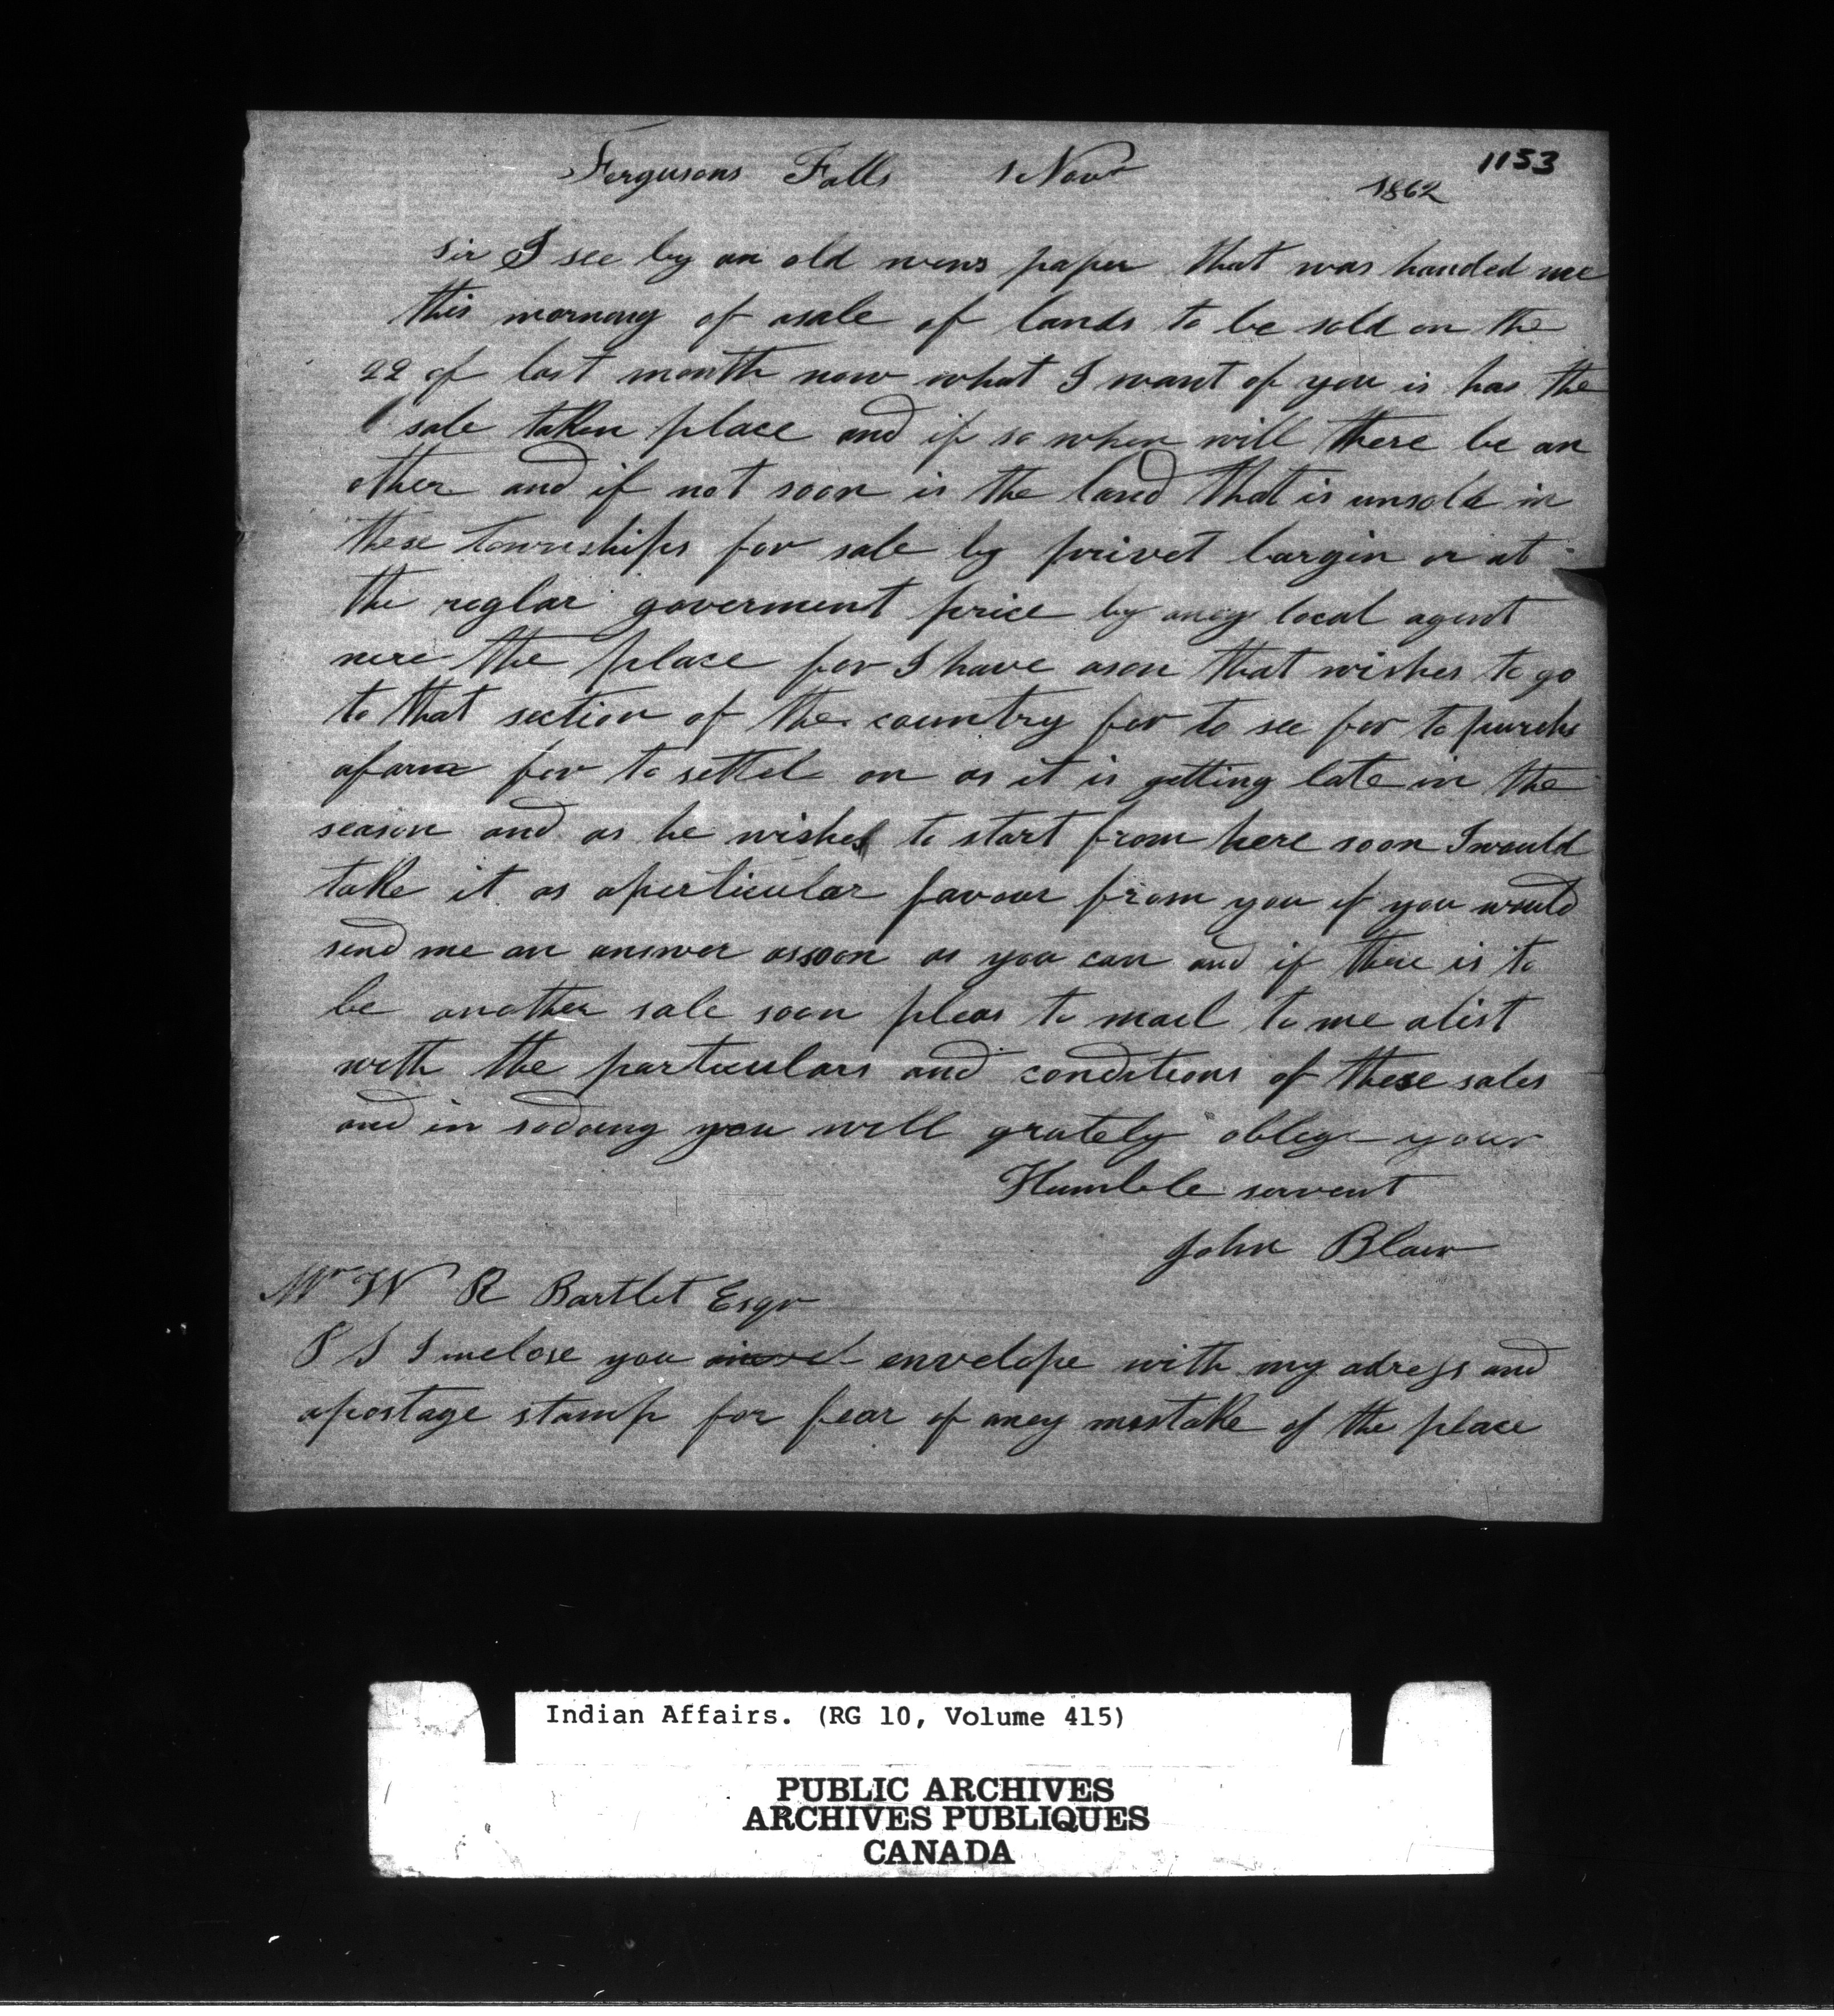 1153
Fergusons Falls 1 Novr
1862
Sir I see by an old news paper that was handed me
this morning of asale of lands to be sold on the
22 of last month now what I want of you is has the
sale taken place and if so when will there be an
other and if not soon is the land that is unsold in
these townships for sale by privet bargin or at
the reglar goverment price by aney local agent
nere the place for I have ason that wishes to go
to that section of the country for to see for to purchs
afarm for to settel on as it is getting late in the
season and as he wishes to start from here soon I would
take it as aperticular favour from you if you would
send me an answer assoon as you can and if there is to
be another sale soon pleas to mail to me alist
with the particulars and conditions of these sales
and in sodoing you will grately oblige your
Humble servent
John Blair
Mr W R Bartlet Esqr
P S I inclose you envelope with my adress and
apostage stamp for fear of aney mistake of the place
Indian Affairs. (RG 10, Volume 415)
PUBLIC ARCHIVES
ARCHIVES PUBLIQUES
CANADA